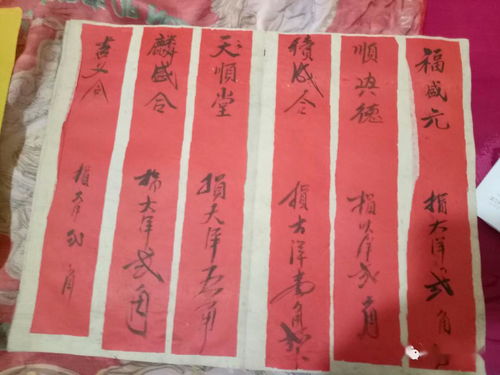 福盛元 捐大洋弍角
順改德 捐大洋弍角
績盛合 捐大洋壹角
天順堂 捐大洋五角
麟盛合 捐大洋弍角
吉文合 捐大洋弍角